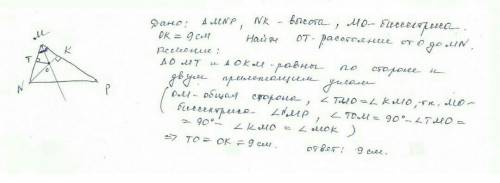 Дано: △MNP, NK - высота, MO - биссектриса.
OK = 9 см Найти OT - расстояние от O до MN.
Решение:
△OMT и △OKM - равны по стороне и
двум прилежащим углам
(OM - общая сторона, ∠TMO = ∠KMO, т.к. MO -
биссектриса ∠NMP, ∠TOM = 90° - ∠TMO =
= 90° - ∠KMO = ∠MOK)
⇒ TO = OK = 9 см. ответ: 9 см.
M
T
K
O
N
P